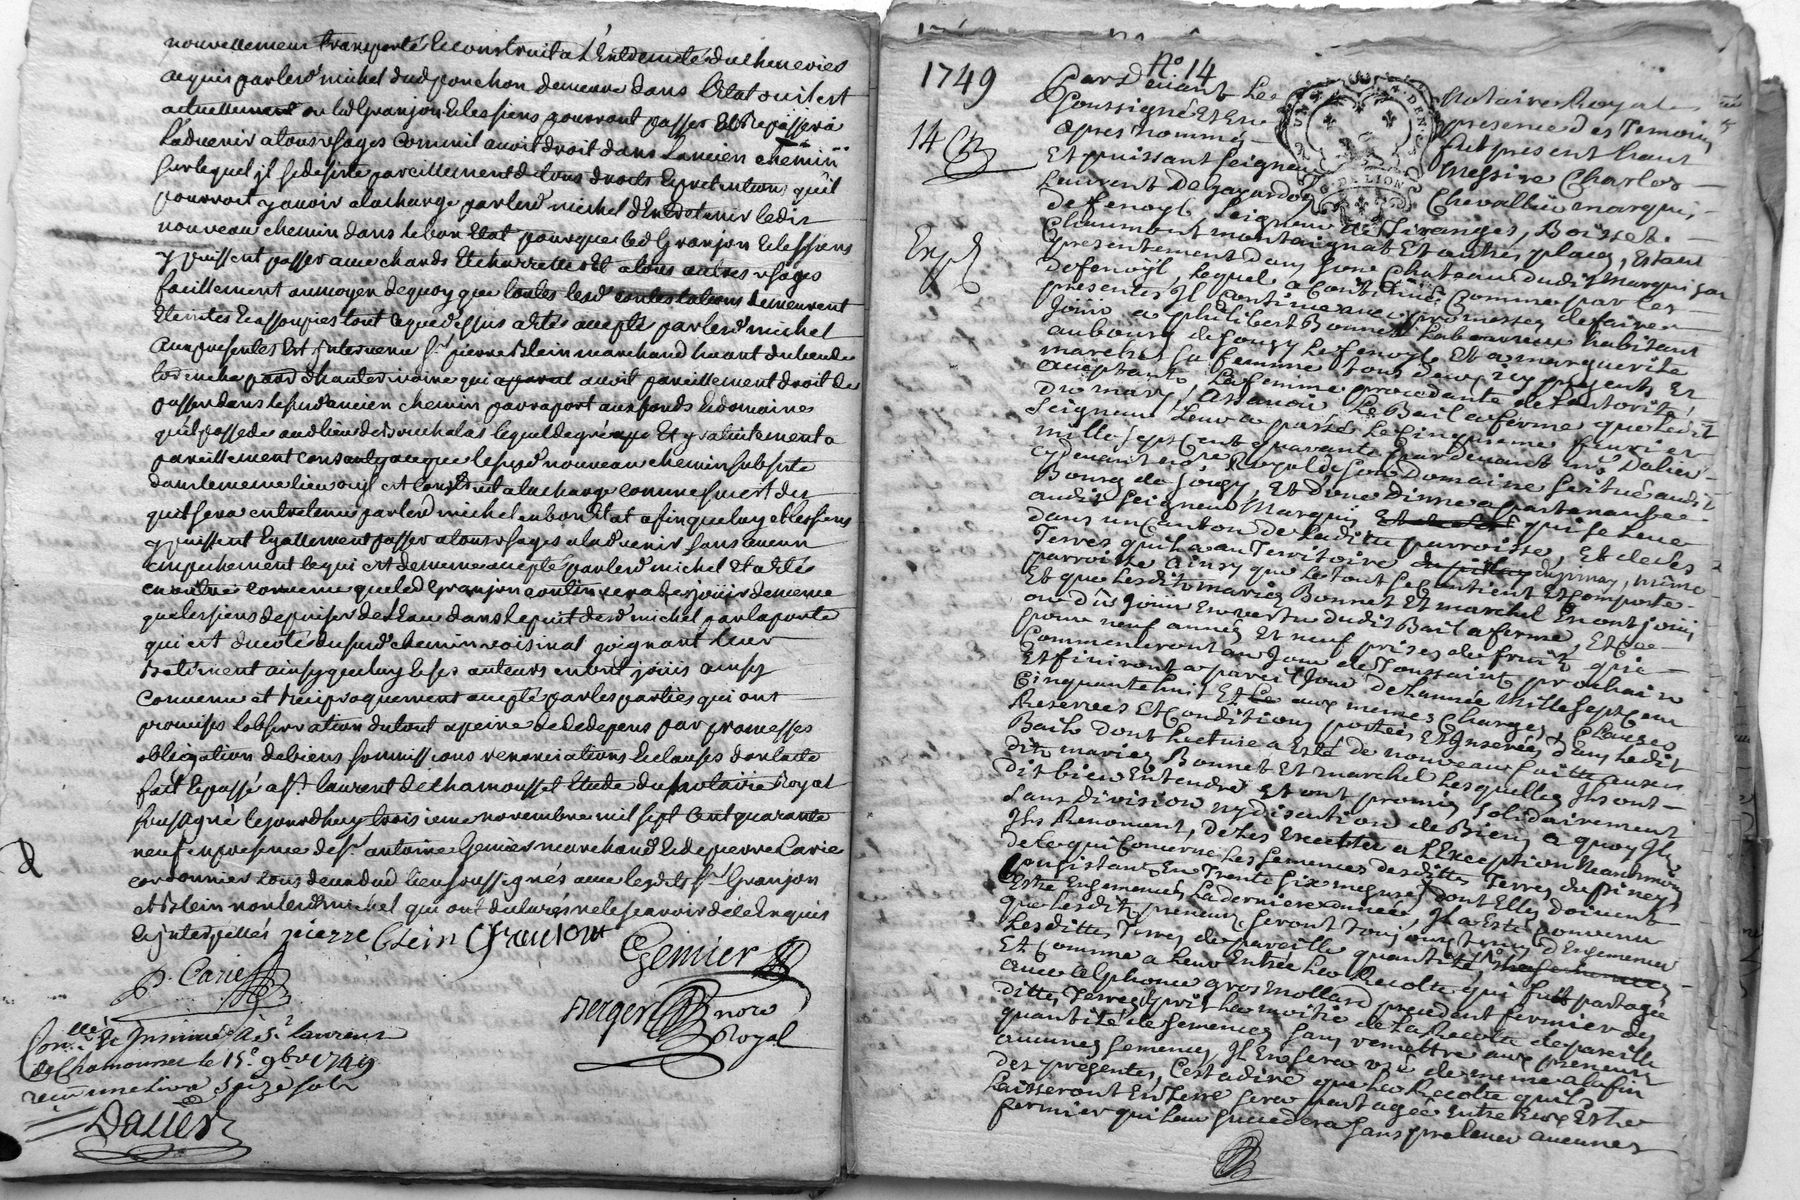 nouvellement transporté & construit a l'Extremité du chenevier
acquis par led michel dud ponchon demeure dans l'état ou il est
actuellement ou led Granjon & les siens pourront passer Et Repasser a
L'advenir a tous usages comme il avoit droit dans l'ancien chemin
sur lequel il se desiste pareillement de tous droits & pretentions qu'il
pourroit y avoir a la charge par led michel d'Entretenir ledit
nouveau chemin dans le bon Etat pour que led Granjon & les siens
y puissent passer avec chards Et charrettes Et a tous autres usages
facillement au moyen de quoy que toutes lesd contestations demeurent
Eteintes & assoupies tout ce que dessus a été accepté par led michel
aux presentes Est Intervenu sr pierre Blein marchand
qui avoit pareillement droit de
passer dans le susd ancien chemin par raport aux fonds & domaines
qu'il possede aud lieu de lequel de gré a gré Et y
pareillement consenty a ce que le susd nouveau chemin subsiste
dans le meme lieu ou il est construit a la charge comme il est dit
qu'il sera entretenu par led michel en bon Etat afin que luy & les siens
y puissent Egallement passer a tous usages a l'advenir sans aucun
empechement ce qui est de meme accepté par led michel Et a été
en outre convenu que led Granjon continuera de jouir de meme
que les siens de puiser de l'Eau dans le puit dud michel par la porte
qui est du coté du susd chemin voisinal joignant leur
Batiment ainsy que luy & ses auteurs en ont jouis ainsy
convenu et reciproquement accepté par les parties qui ont
promises l'observation du tout a peine de depens par promesses
obligation de biens soumissions renonciations & clauses dont acte
fait & passé a st laurent de chamousset Etude du notaire Royal
soussigné le jourdhuy troisieme novembre mil sept cent quarante
neuf en presence de sr antoine Genier marchand & de pierre Carie
cordonnier tous deux dud lieu soussignés avec lesdits sr Granjon
et Blein non led michel qui ont declaré ne le scavoir de ce Enquis
& interpellés pierre Blein Granjon
P. Carie
Genier
Berger nore
Royal
Conllé Et Insinué A St Laurent
de Chamousset le 15e 9bre 1749
recu une livre seize sols
Dalier
1749
No 14
14
Exp
Pardevant Les Notaires Royal
Soussigné Et En presence des Temoins
apres nommés fut present haut
Et puissant Seigneur Messire Charles
Laurent De Gayardon Chevallier marquis
de fenoyl Seigneur de Tiranges, Boisset
Chaumont montaignat Et autres places, Estant
presentement dans Son Chateau dudit
de fenoyl, Lequel a Continué Comme par Ces
presentes Il Continue avec promesses de faire
Jouir a philibert Bonnet Laboureur habitant
au bourg de Souzy Le fenoyl Et a marguerite
marchet sa femme tous deux icy presents Et
acceptants La femme procedante de l'autorité
du mary, Assavoir Le Bail a ferme que Ledit
Seigneur Leur a passé Le Cinquieme fevrier
mille sept Cent quarante par devant me Dalier
cy devant notre Royal de son Domaine Scitué audit
Bourg de Souzy Et d'une Dixme appartenante
audit Seigneur Marquis qui se Leve
dans un Canton de Ladite parroisse, Et de des
Terres qu'il a au Territoire du piney, meme
parroisse ainsy que Le tout Se Contient Et Comporte
Et que Lesdits mariez Bonnet Et marchet En ont joui
ou dû jouir En vertu dudit Bail a ferme, Et Ce
pour neuf années Et neuf prises de fruits qui
Commenceront au Jour de Toussaint prochain
Et finiront a pareil Jour de L'année Mille sept Cent
Cinquante huit Et aux memes Charges, Clauses
Reserves Et Conditions portées Et Inserées dans Ledit
Bail dont Lecture a Eté de nouveau faitte auxs
dits mariez Bonnet Et marchet Lesquelles Ils ont
dit bien Entendre Et ont promis solidairement
Sans division ny discution de Biens a quoy Ils
Renoncent, de Les Executer a L'Exception Neanmoins
de Ce qui Concerne Les Semences desdittes Terres du piney
Consistant En Trente Six mesures dont Elles doivent
Estre Ensemencés La derniere année, Il a Esté Convenu
que Lesdits preneurs seront toujours tenus d'Ensemencer
Lesdittes Terres de pareille quantité,
Et Comme a Leur Entrée La Recolte qui fut partagée
avec alphonce gros mollard precedent fermier des
dittes Terres prit La moitié de La Recolte de pareille
quantité de Semences Sans remettre aux preneurs
aucunes Semences, Il En sera usé de meme a La fin
des presentes, C'est a dire que La Recolte qu'ils
Laisseront En Terre sera partagée Entre Eux Et Le
fermier qui Leur succedera Sans prelever aucunes